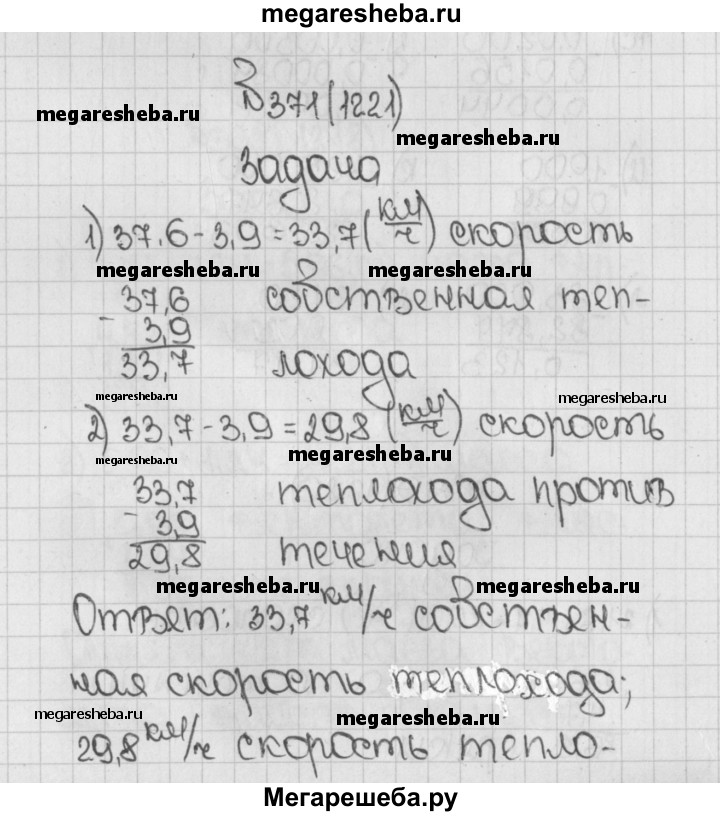 megaresheba.ru
№371(1221)
megaresheba.ru
megaresheba.ru
Задача
1) 37.6-3,9=33,7(км/ч) скорость
megaresheba.ru
megaresheba.ru
37,6 собственная теп-
- 3,9
33,7 лохода
megaresheba.ru
megaresheba.ru
2) 33,7-3,9=29,8 (км/ч) скорость
megaresheba.ru
megaresheba.ru
33,7 теплохода против
- 3,9
29,8 течения
megaresheba.ru
megaresheba.ru
Ответ: 33,7 км/ч собствен-
ная скорость теплохода;
megaresheba.ru
megaresheba.ru
29,8 км/ч скорость тепло-
Мегарешеба.ру